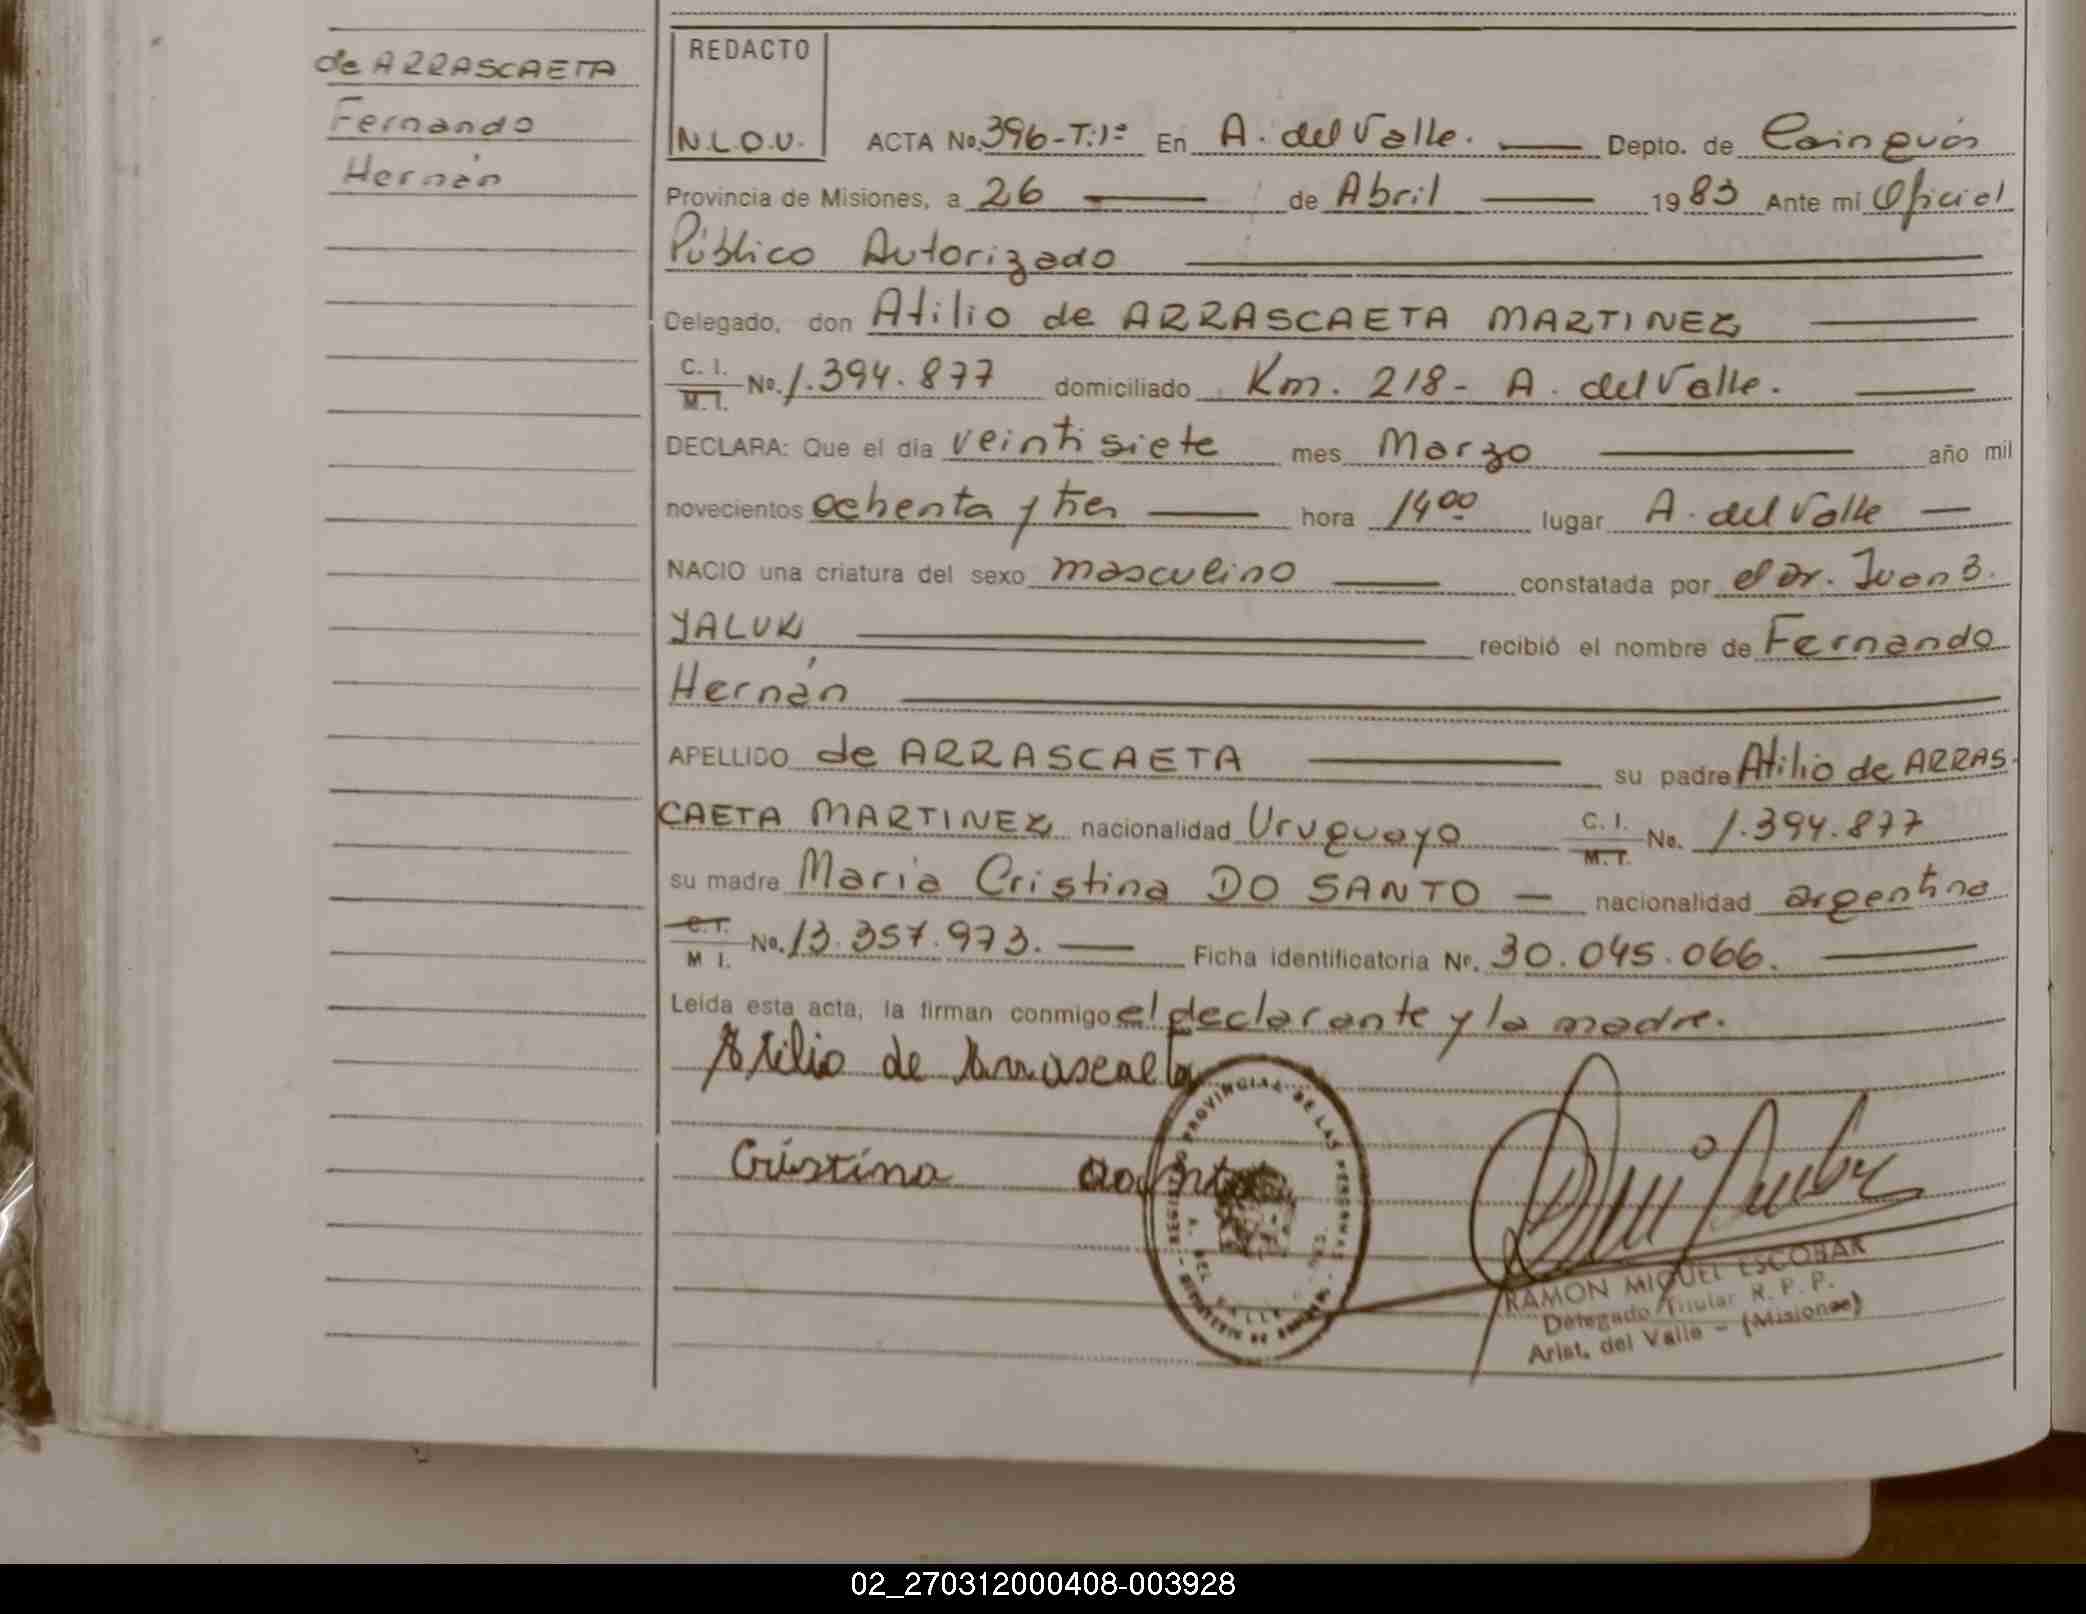 de ARRASCAETA
Fernando
Hernán
REDACTO
N.L.O.V.
ACTA No. 396-T:1º En A. del Valle. Depto. de Cainguás
Provincia de Misiones, a 26 de Abril 1983 Ante mi Oficial
Público Autorizado
Delegado, don Atilio de ARRASCAETA MARTINEZ
C. I. M. I. No. 1.394.877 domiciliado Km. 218- A. del Valle.
DECLARA: Que el día veintisiete mes Marzo año mil
novecientos ochenta y tres hora 14 00 lugar A. del Valle
NACIO una criatura del sexo masculino constatada por el Dr. Juan B.
YALUK recibió el nombre de Fernando
Hernán
APELLIDO de ARRASCAETA su padre Atilio de ARRAS-
CAETA MARTINEZ nacionalidad Uruguayo C. I. M. I. No. 1.394.877
su madre María Cristina DO SANTO nacionalidad argentina
C. I. M I. No. 13.357.973. Ficha identificatoria Nº. 30.045.066.
Leída esta acta, la firman conmigo el declarante y la madre.
Atilio de Arrascaeta
Cristina
REGISTRO PROVINCIAL DE LAS PERSONAS
A. DEL VALLE
RAMON MIGUEL ESCOBAR
Delegado Titular R. P. P.
Arist. del Valle - (Misiones)
02_270312000408-003928